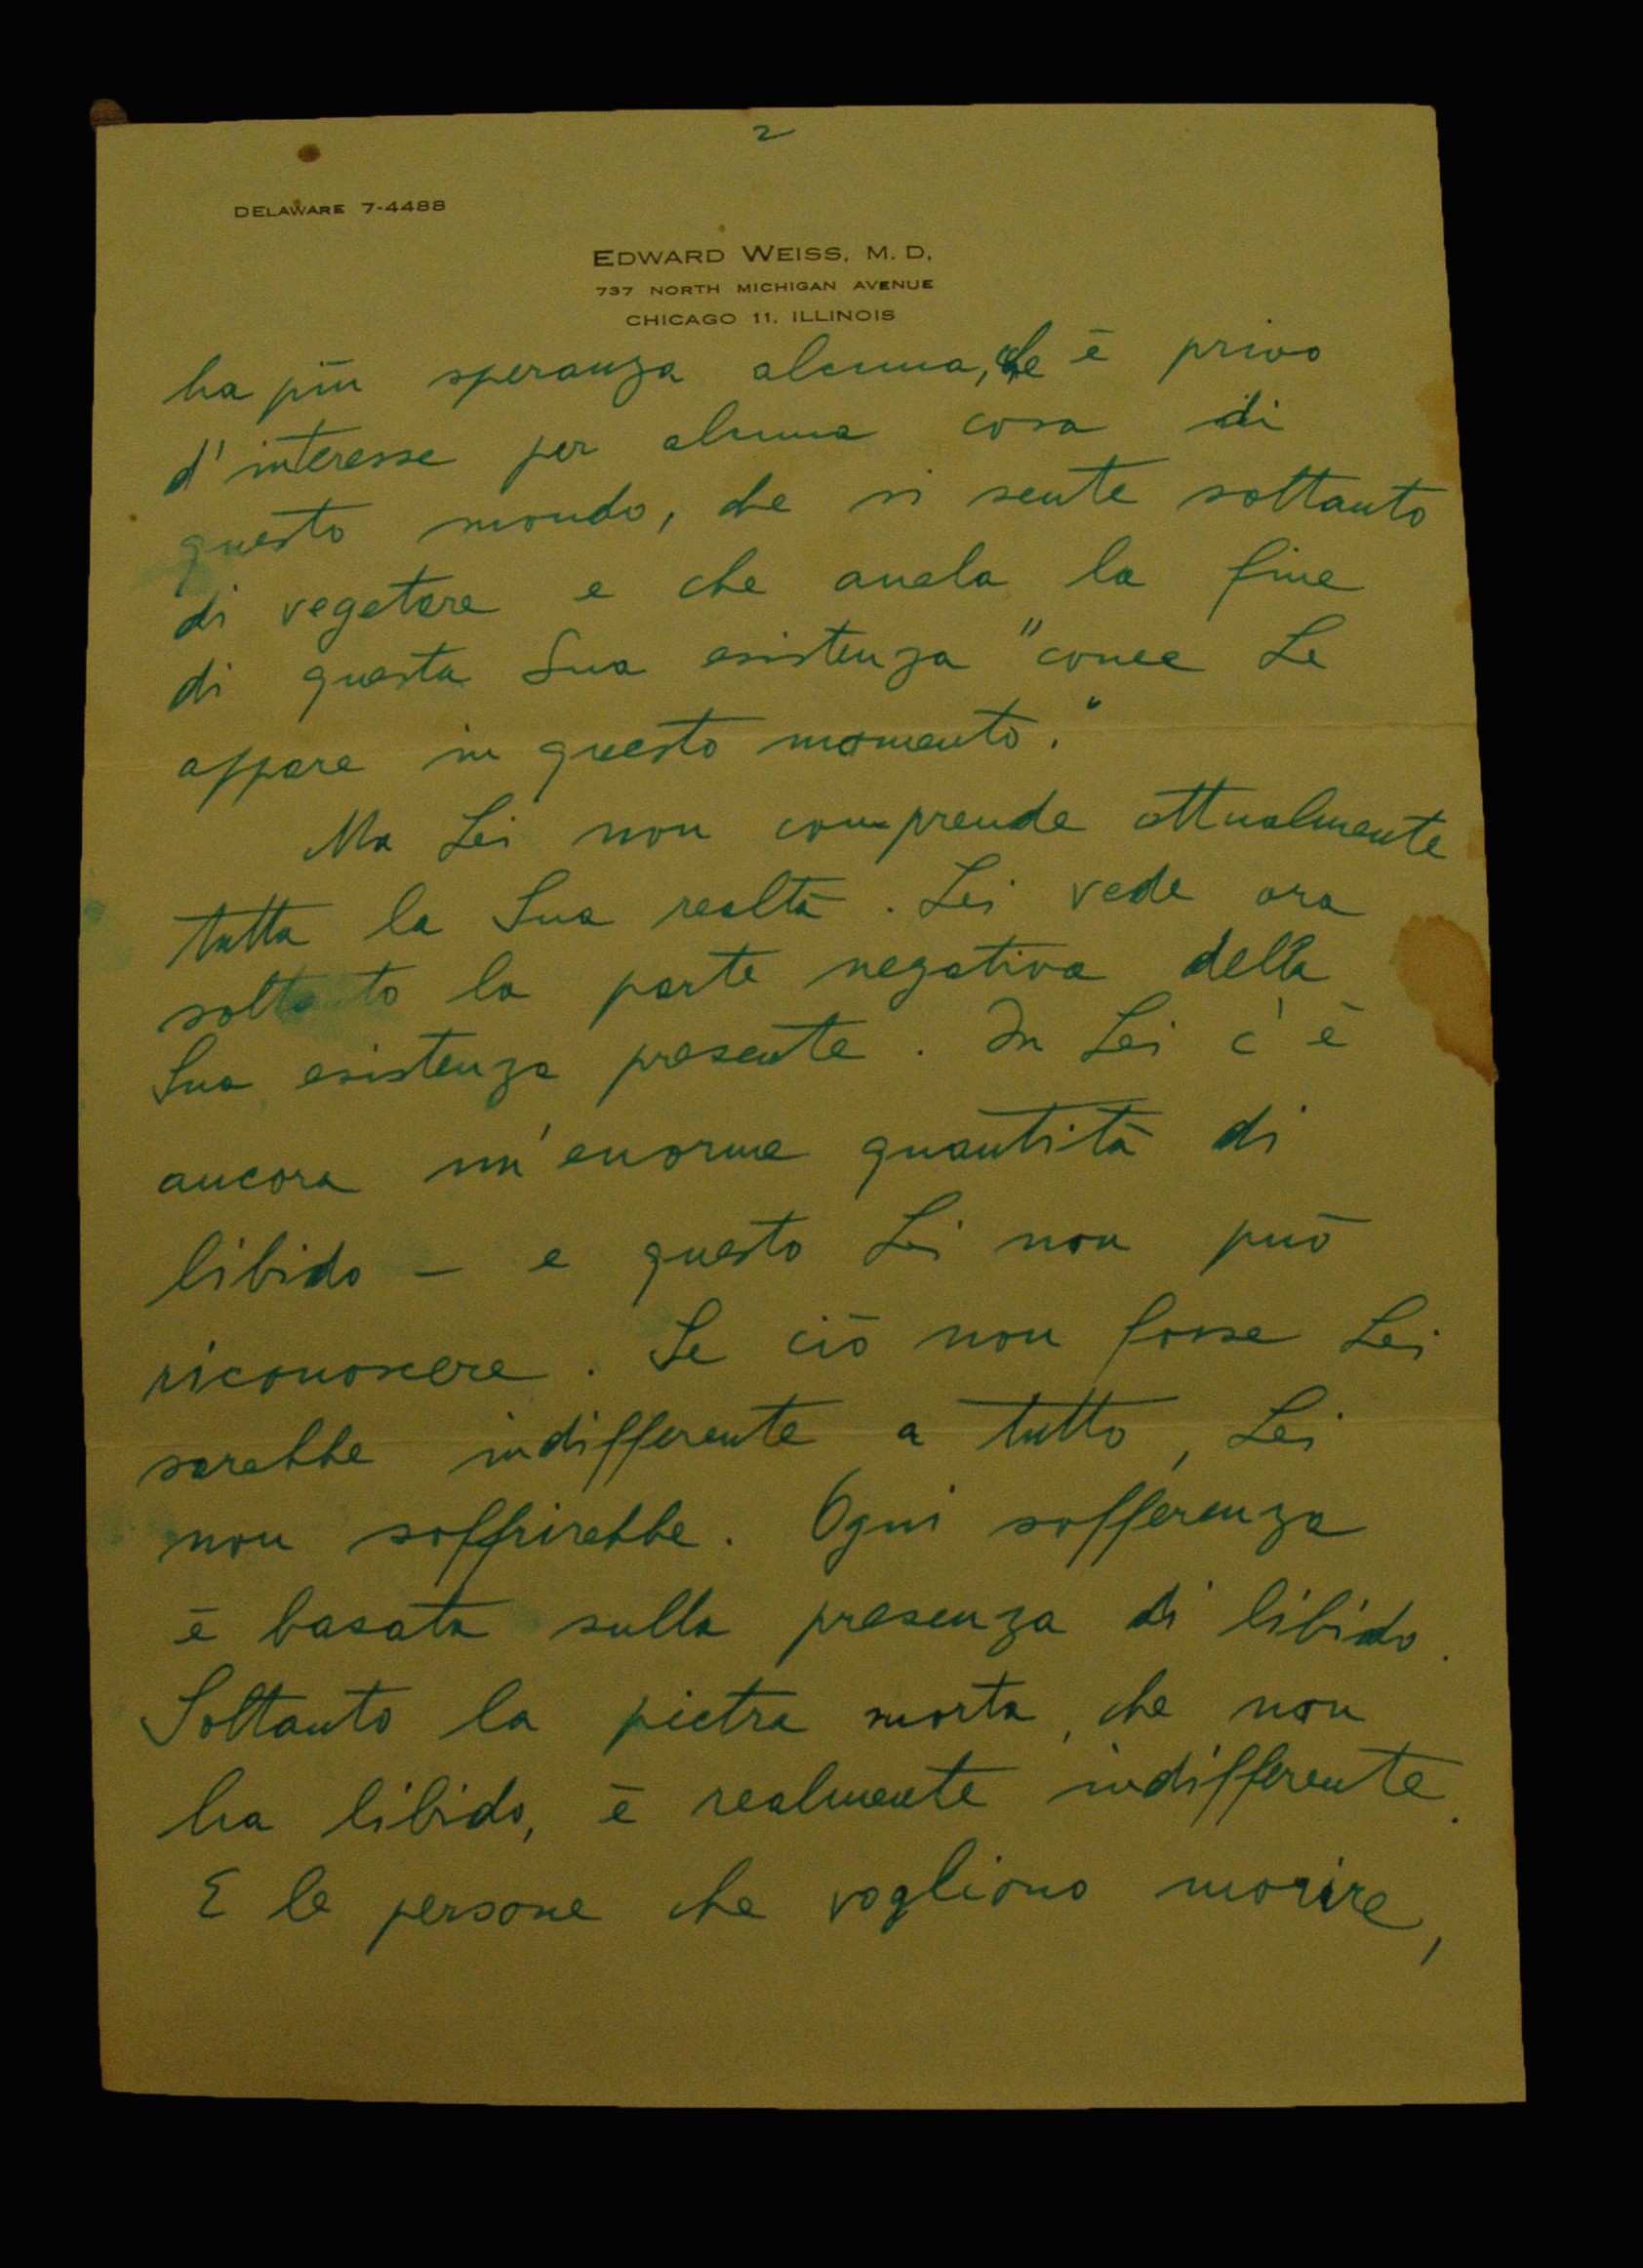 2
DELAWARE 7-4488
EDWARD WEISS, M. D.
737 NORTH MICHIGAN AVENUE
CHICAGO 11, ILLINOIS
ha più speranza alcuna, che è privo
d'interesse per alcuna cosa di
questo mondo, che si sente soltanto
di vegetare e che anela la fine
di questa Sua esistenza "come Le
appare in questo momento."
Ma Lei non comprende attualmente
tutta la Sua realtà. Lei vede ora
soltanto la parte negativa della
Sua esistenza presente. In Lei c'è
ancora un'enorme quantità di
libido – e questo Lei non può
riconoscere. Se ciò non fosse Lei
sarebbe indifferente a tutto, Lei
non soffrirebbe. Ogni sofferenza
è basata sulla presenza di libido.
Soltanto la pietra morta, che non
ha libido, è realmente indifferente.
E le persone che vogliono morire,